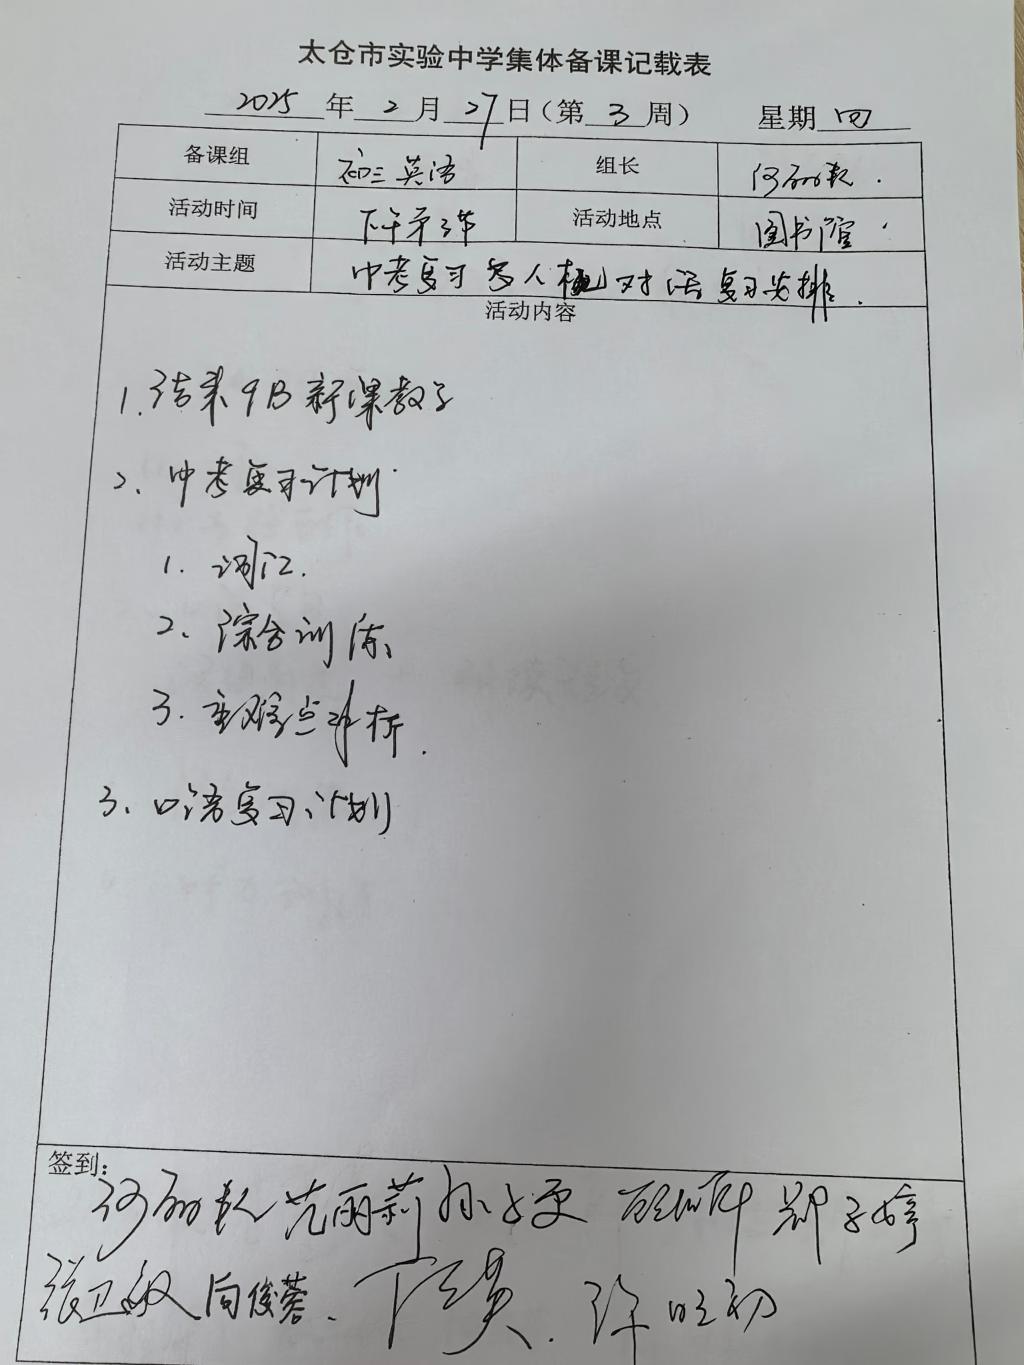 太仓市实验中学集体备课记载表
2025 年 2 月 27 日（第 3 周） 星期 四
备课组 初三英语 组长
活动时间 下午第3节 活动地点 图书馆
活动主题 中考复习 与人机对话复习安排.
活动内容
1. 结束9B新课教学
2、中考复习计划
1. 词汇.
2、综合训练
3. 重难点评析.
3、口语复习计划
签到：
范丽莉 郑子婷
张卫敏 向俊蓉、